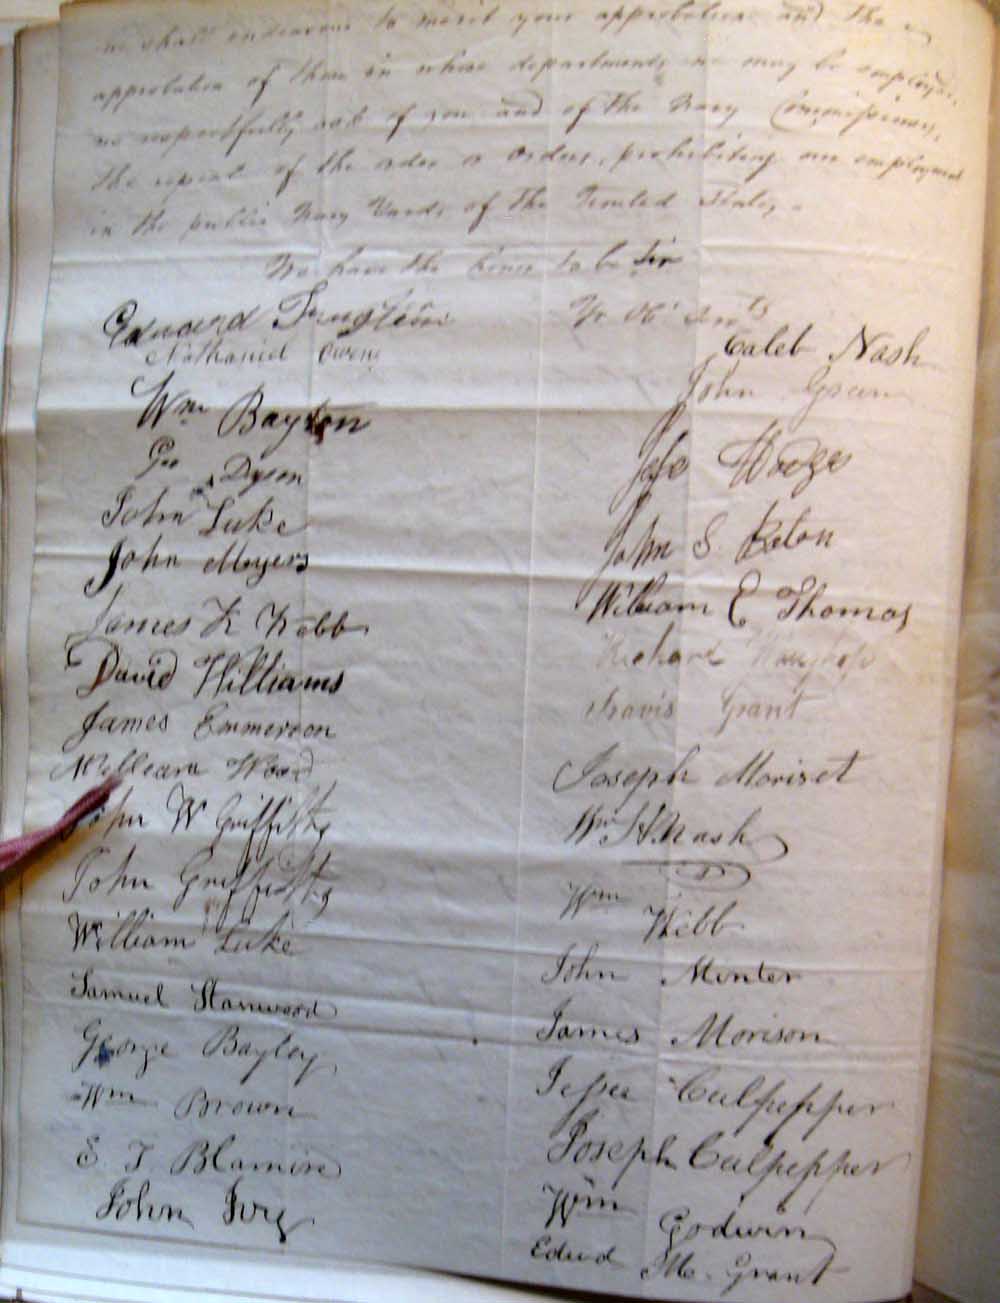 we shall endeavour to merit your approbation and the
approbation of those in whose departments we may be employed.
we respectfully ask of you and of the Navy Commissioners,
the repeal of the order or orders, prohibiting our employment
in the public Navy Yards of the United States,
We have the honor to be Sir
Yr Obt Servts
Edward
Nathaniel Owens
Wm Bayton
Geo Dyson
John Luke
John Moyers
James K Webb
David Williams
James Emmerson
William Ward
John W Griffiths
John Griffiths
William Luke
Samuel Stanwood
George Bayley
Wm Brown
E T Blamire
John Ivey
Caleb Nash
John Green
Jesse Hodges
John S Beton
William E Thomas
Richard
Travis Grant
Joseph Moriset
Wm H. Nash
Wm Webb
John Minter
James Morison
Jesse Culpepper
Joseph Culpepper
Wm Godwin
Edwd M. Grant